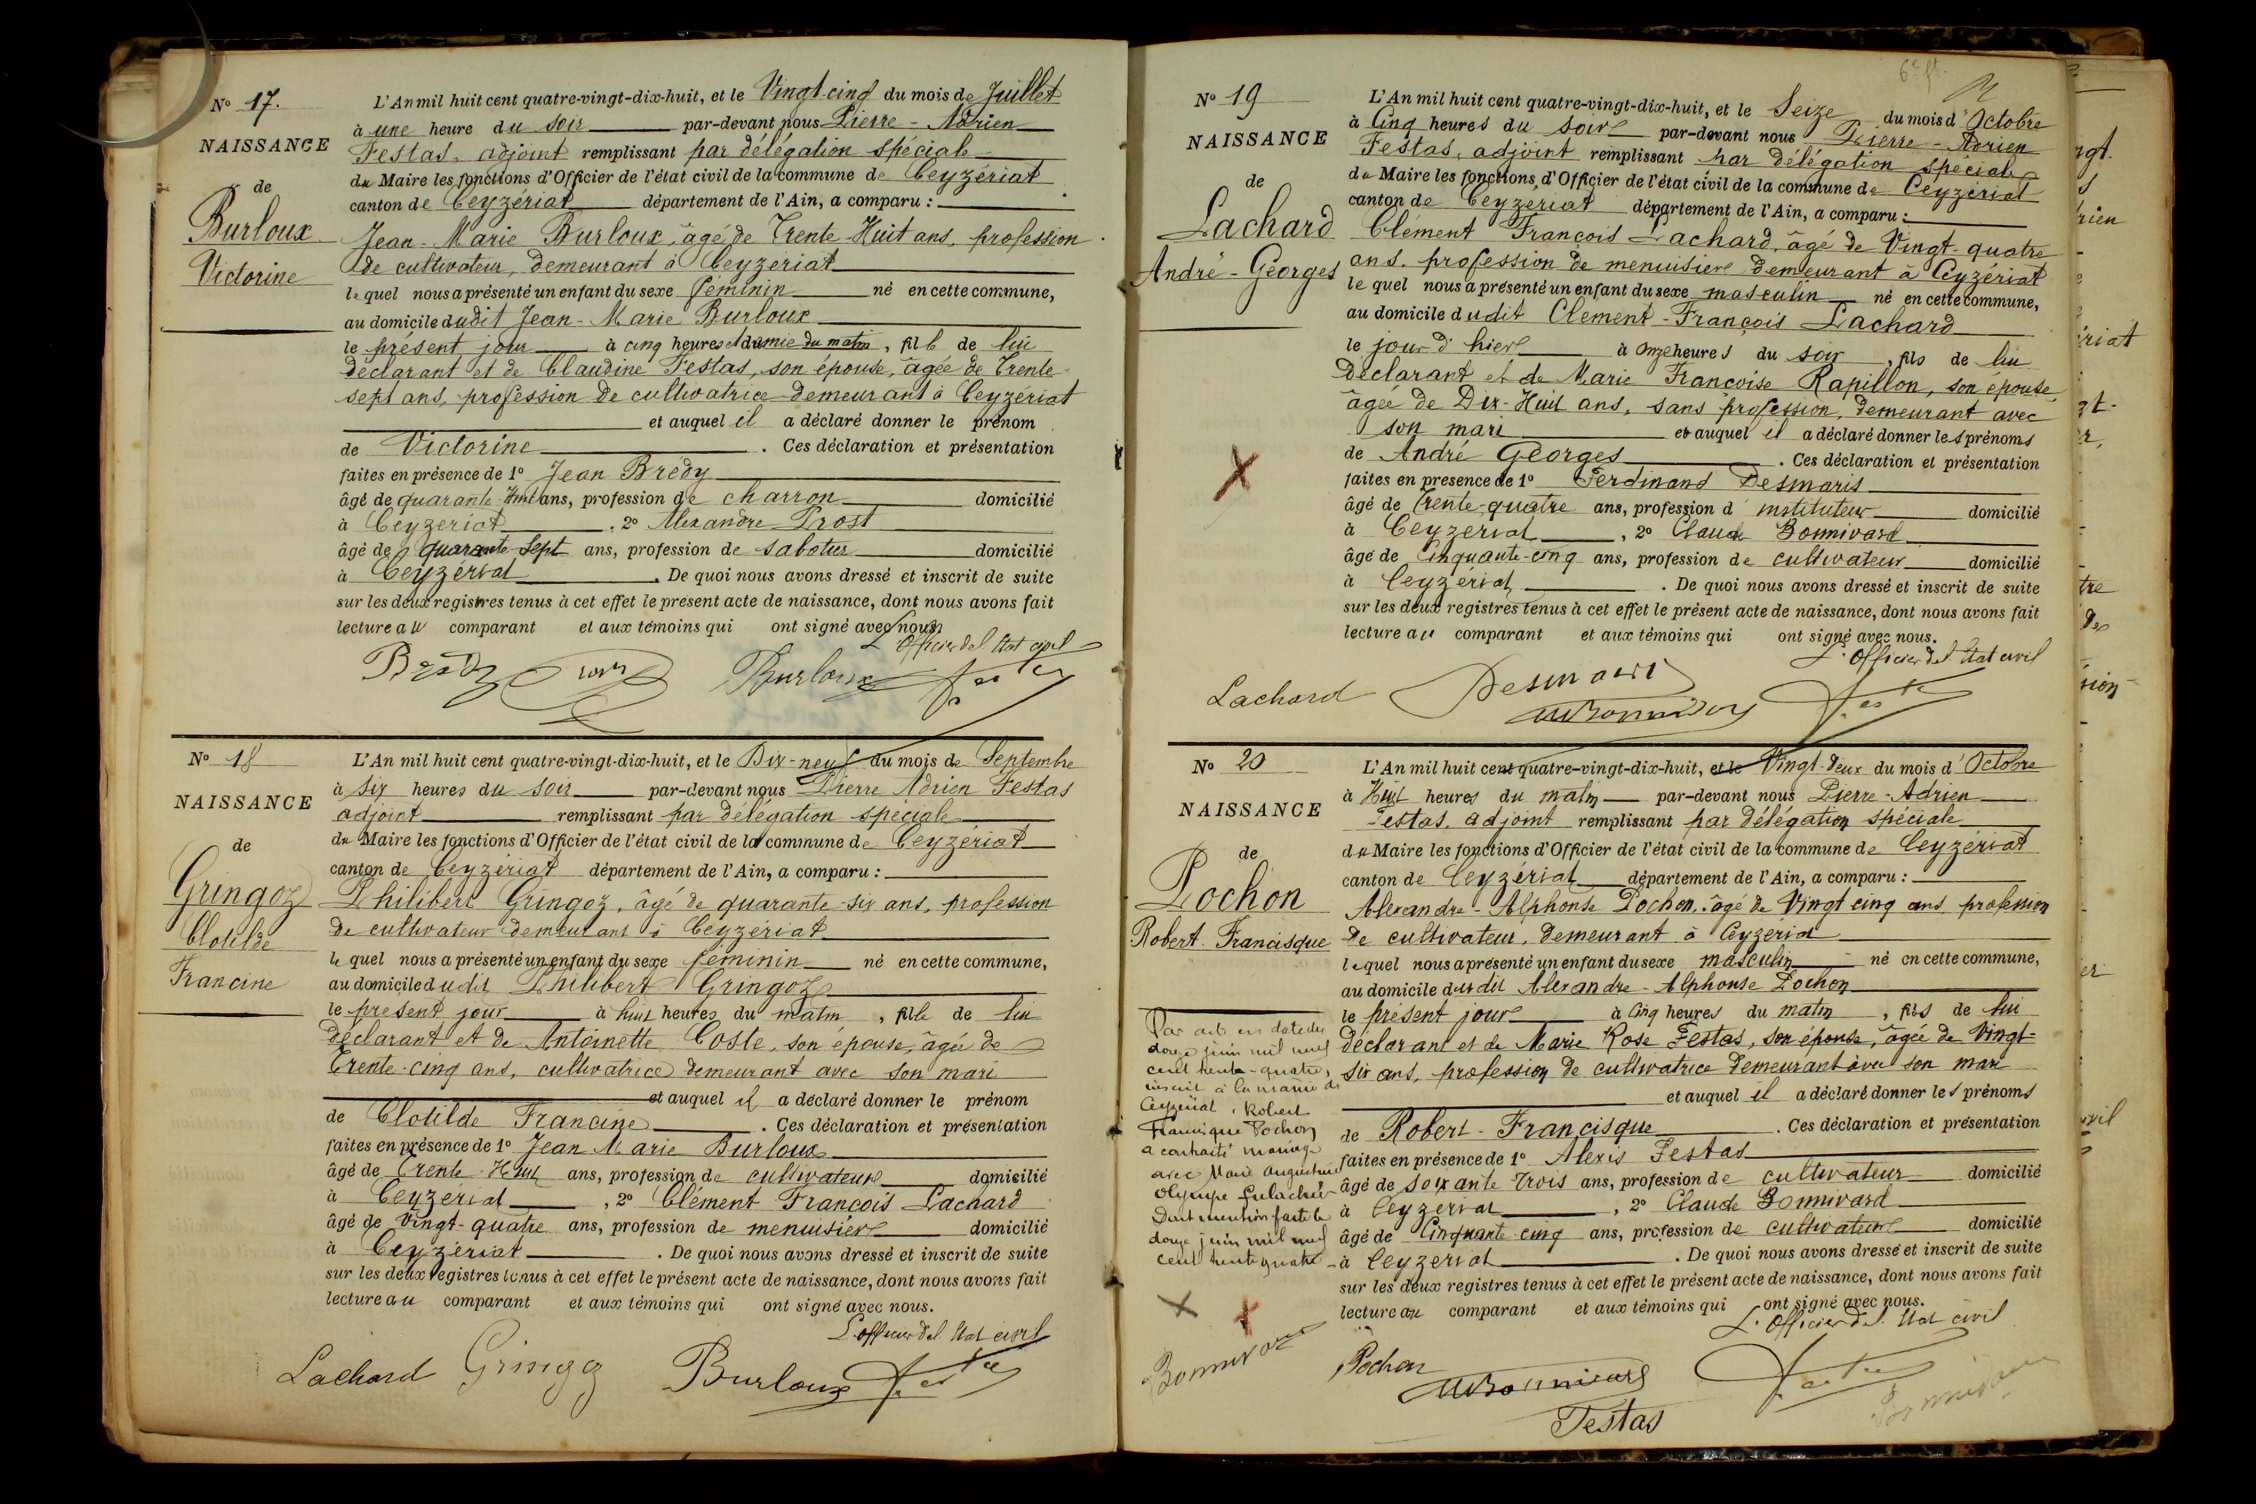 N° 17.
NAISSANCE
de
Burloux
Victorine
L'An mil huit cent quatre-vingt-dix-huit, et le Vingt-cinq du mois de Juillet
à une heure du soir par-devant nous Pierre-Adrien
Festas, adjoint remplissant par délégation spéciale
du Maire les fonctions d'Officier de l'état civil de la commune de Ceyzériat
canton de Ceyzériat département de l'Ain, a comparu :
Jean-Marie Burloux, âgé de Trente-Huit ans, profession
de cultivateur, demeurant à Ceyzeriat
lequel nous a présenté un enfant du sexe féminin né en cette commune,
au domicile dudit Jean-Marie Burloux
le présent jour à cinq heures et demie du matin, fille de lui
déclarant et de Claudine Festas, son épouse, âgée de Trente-
sept ans, profession de cultivatrice demeurant à Ceyzériat
et auquel il a déclaré donner le prénom
de Victorine . Ces déclaration et présentation
faites en présence de 1° Jean Brédy
âgé de quarante-Huit ans, profession de charron domicilié
à Ceyzeriat , 2° Alexandre Prost
âgé de quarante-sept ans, profession de sabotier domicilié
à Ceyzériat . De quoi nous avons dressé et inscrit de suite
sur les deux registres tenus à cet effet le présent acte de naissance, dont nous avons fait
lecture au comparant et aux témoins qui ont signé avec nous.
L'Officier de l'Etat civil
Brédy Burloux
N° 18
NAISSANCE
de
Gringoz
Clotilde
Francine
L'An mil huit cent quatre-vingt-dix-huit, et le Dix-neuf du mois de Septembre
à six heures du soir par-devant nous Pierre Adrien Festas
adjoint remplissant par délégation spéciale
du Maire les fonctions d'Officier de l'état civil de la commune de Ceyzériat
canton de Ceyzériat département de l'Ain, a comparu :
Philibert Gringoz, âgé de quarante-six ans, profession
de cultivateur demeurant à Ceyzériat
lequel nous a présenté un enfant du sexe féminin né en cette commune,
au domicile dudit Philibert Gringoz
le présent jour à huit heures du matin , fille de lui
déclarant et de Antoinette Coste, son épouse, âgée de
Trente-cinq ans, cultivatrice demeurant avec son mari
et auquel il a déclaré donner le prénom
de Clotilde Francine . Ces déclaration et présentation
faites en présence de 1° Jean Marie Burloux
âgé de Trente-Huit ans, profession de cultivateur domicilié
à Ceyzeriat , 2° Clément François Lachard
âgé de Vingt-quatre ans, profession de menuisier domicilié
à Ceyzériat . De quoi nous avons dressé et inscrit de suite
sur les deux registres tenus à cet effet le présent acte de naissance, dont nous avons fait
lecture au comparant et aux témoins qui ont signé avec nous.
L'officier de l'Etat civil
Lachard Gringoz Burloux
N° 19
NAISSANCE
de
Lachard
André-Georges
L'An mil huit cent quatre-vingt-dix-huit, et le Seize du mois d'Octobre
à Cinq heures du soir par-devant nous Pierre-Adrien
Festas, adjoint remplissant par délégation spéciale
du Maire les fonctions d'Officier de l'état civil de la commune de Ceyzériat
canton de Ceyzeriat département de l'Ain, a comparu :
Clément François Lachard, âgé de Vingt-quatre
ans, profession de menuisier demeurant à Ceyzériat
lequel nous a présenté un enfant du sexe masculin né en cette commune,
au domicile dudit Clement-François Lachard
le jour d'hier à onze heures du soir , fils de lui
déclarant et de Marie Françoise Rapillon, son épouse,
âgée de Dix-Huit ans, sans profession, demeurant avec
son mari et auquel il a déclaré donner les prénoms
de André Georges . Ces déclaration et présentation
faites en présence de 1° Ferdinand Desmaris
âgé de Trente-quatre ans, profession d'instituteur domicilié
à Ceyzeriat , 2° Claude Bonnivard
âgé de Cinquante-cinq ans, profession de cultivateur domicilié
à Ceyzériat . De quoi nous avons dressé et inscrit de suite
sur les deux registres tenus à cet effet le présent acte de naissance, dont nous avons fait
lecture au comparant et aux témoins qui ont signé avec nous.
L'Officier de l'Etat civil
Lachard Desmaris
N° 20
NAISSANCE
de
Pochon
Robert Francisque
Par acte en date du
douze juin mil neuf
cent trente-quatre,
inscrit à la mairie de
Ceyzériat, Robert
Francisque Pochon
a contracté mariage
avec Marie Augustine
Olympe
Dont mention faite le
douze juin mil neuf
cent trente quatre
L'An mil huit cent quatre-vingt-dix-huit, et le Vingt-deux du mois d'Octobre
à Huit heures du matin par-devant nous Pierre-Adrien
Festas, adjoint remplissant par délégation spéciale
du Maire les fonctions d'Officier de l'état civil de la commune de Ceyzériat
canton de Ceyzériat département de l'Ain, a comparu :
Alexandre-Alphonse Pochon, âgé de Vingt cinq ans profession
de cultivateur, demeurant à Ceyzeriat
lequel nous a présenté un enfant du sexe masculin né en cette commune,
au domicile dudit Alexandre-Alphonse Pochon
le présent jour à Cinq heures du matin , fils de lui
déclarant et de Marie Rose Festas, son épouse, âgée de Vingt-
six ans, profession de cultivatrice demeurant avec son mari
et auquel il a déclaré donner les prénoms
de Robert-Francisque . Ces déclaration et présentation
faites en présence de 1° Alexis Festas
âgé de soixante trois ans, profession de cultivateur domicilié
à Ceyzeriat , 2° Claude Bonnivard
âgé de Cinquante-cinq ans, profession de cultivateur domicilié
à Ceyzeriat . De quoi nous avons dressé et inscrit de suite
sur les deux registres tenus à cet effet le présent acte de naissance, dont nous avons fait
lecture au comparant et aux témoins qui ont signé avec nous.
L'Officier de l'Etat civil
Pochon Bonnivard
Festas